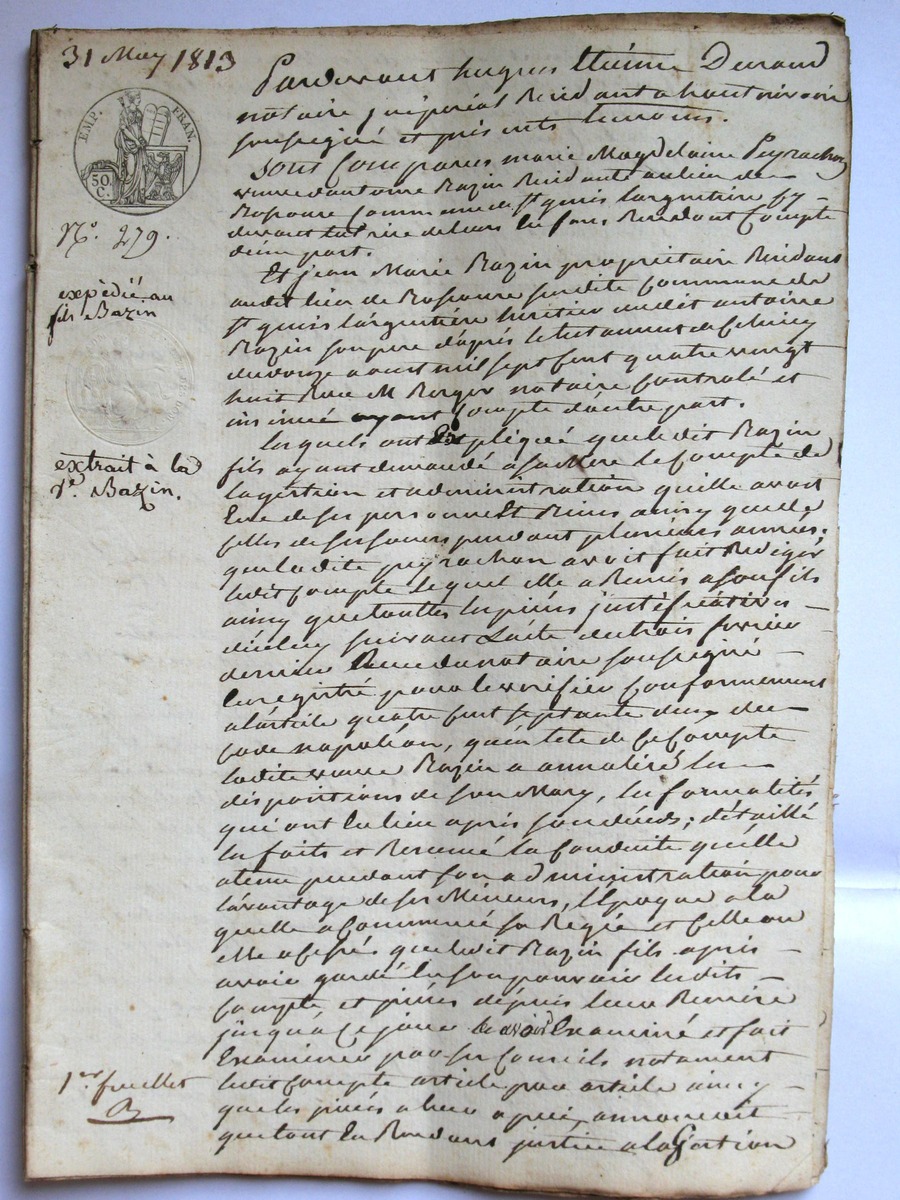 31 May 1813
EMP. FRAN.
50. C.
N°. 279.
expédié au
fils Bazin
extrait à la
Ve. Bazin.
1er. feuillet
Pardevant hugues Etienne Durand
notaire impérial Residant a haut rivoire
soussigné et présents temoins.
Sont Comparus marie Magdelaine Peyrachon
veuve dantoine Bazin Residante au lieu de
commune de st genis largentiere cy
devant tutrice de leurs Enfans Rendant Compte
dune part.
Et jean Marie Bazin propriétaire Residant
audit lieu de susdite Commune de
st genis largentiére héritier dudit antoine
Bazin son pere d'apres le testament de Celuicy
du aoust mil sept Cent quatre vingt
huit Reçu M Berger notaire Controlé et
insinué ayant Compte d'autre part.
lesquels ont Expliqué que ledit Bazin
fils ayant demandé a sa Mere le Compte de
la géstion et administration quelle avoit
Eue de ses personne Et Biens ainsy que de
Celles de ses soeurs pendant plusieurs années;
que ladite peyrachon avoit fait Rediger
ledit Compte lequel elle a Remis a son fils
ainsy que toutes les piéces justificatives
dicelui suivant L'acte du trois fevrier
dernier Reçu du notaire soussigné
Enregistré pour le verifier Conformement
a larticle quatre Cent septante deux du
Code napoléon, qu'en tete de Ce Compte
ladite veuve Bazin a annalisé les
dispositions de son Mary, les formalités
qui ont Eu lieu après son décés; détaillé
les faits et Resumé la Conduite quelle
a tenu pendant son administration pour
lavantage de ses Mineurs, l'Epoque a la
quelle a Commencé sa Regie et Celle ou
elle a cessés que ledit Bazin fils après
avoir gardé En son pouvoir lesdits
Compte et piéces dépuis leur Remise
jusqu'à Ce jour Examiné et fait
Examiner par ses Conseils notament
ledit Compte article par article ainsy
que les piéces a leur apuis, annoncoit
que tout En Rendant justice a la Géstion